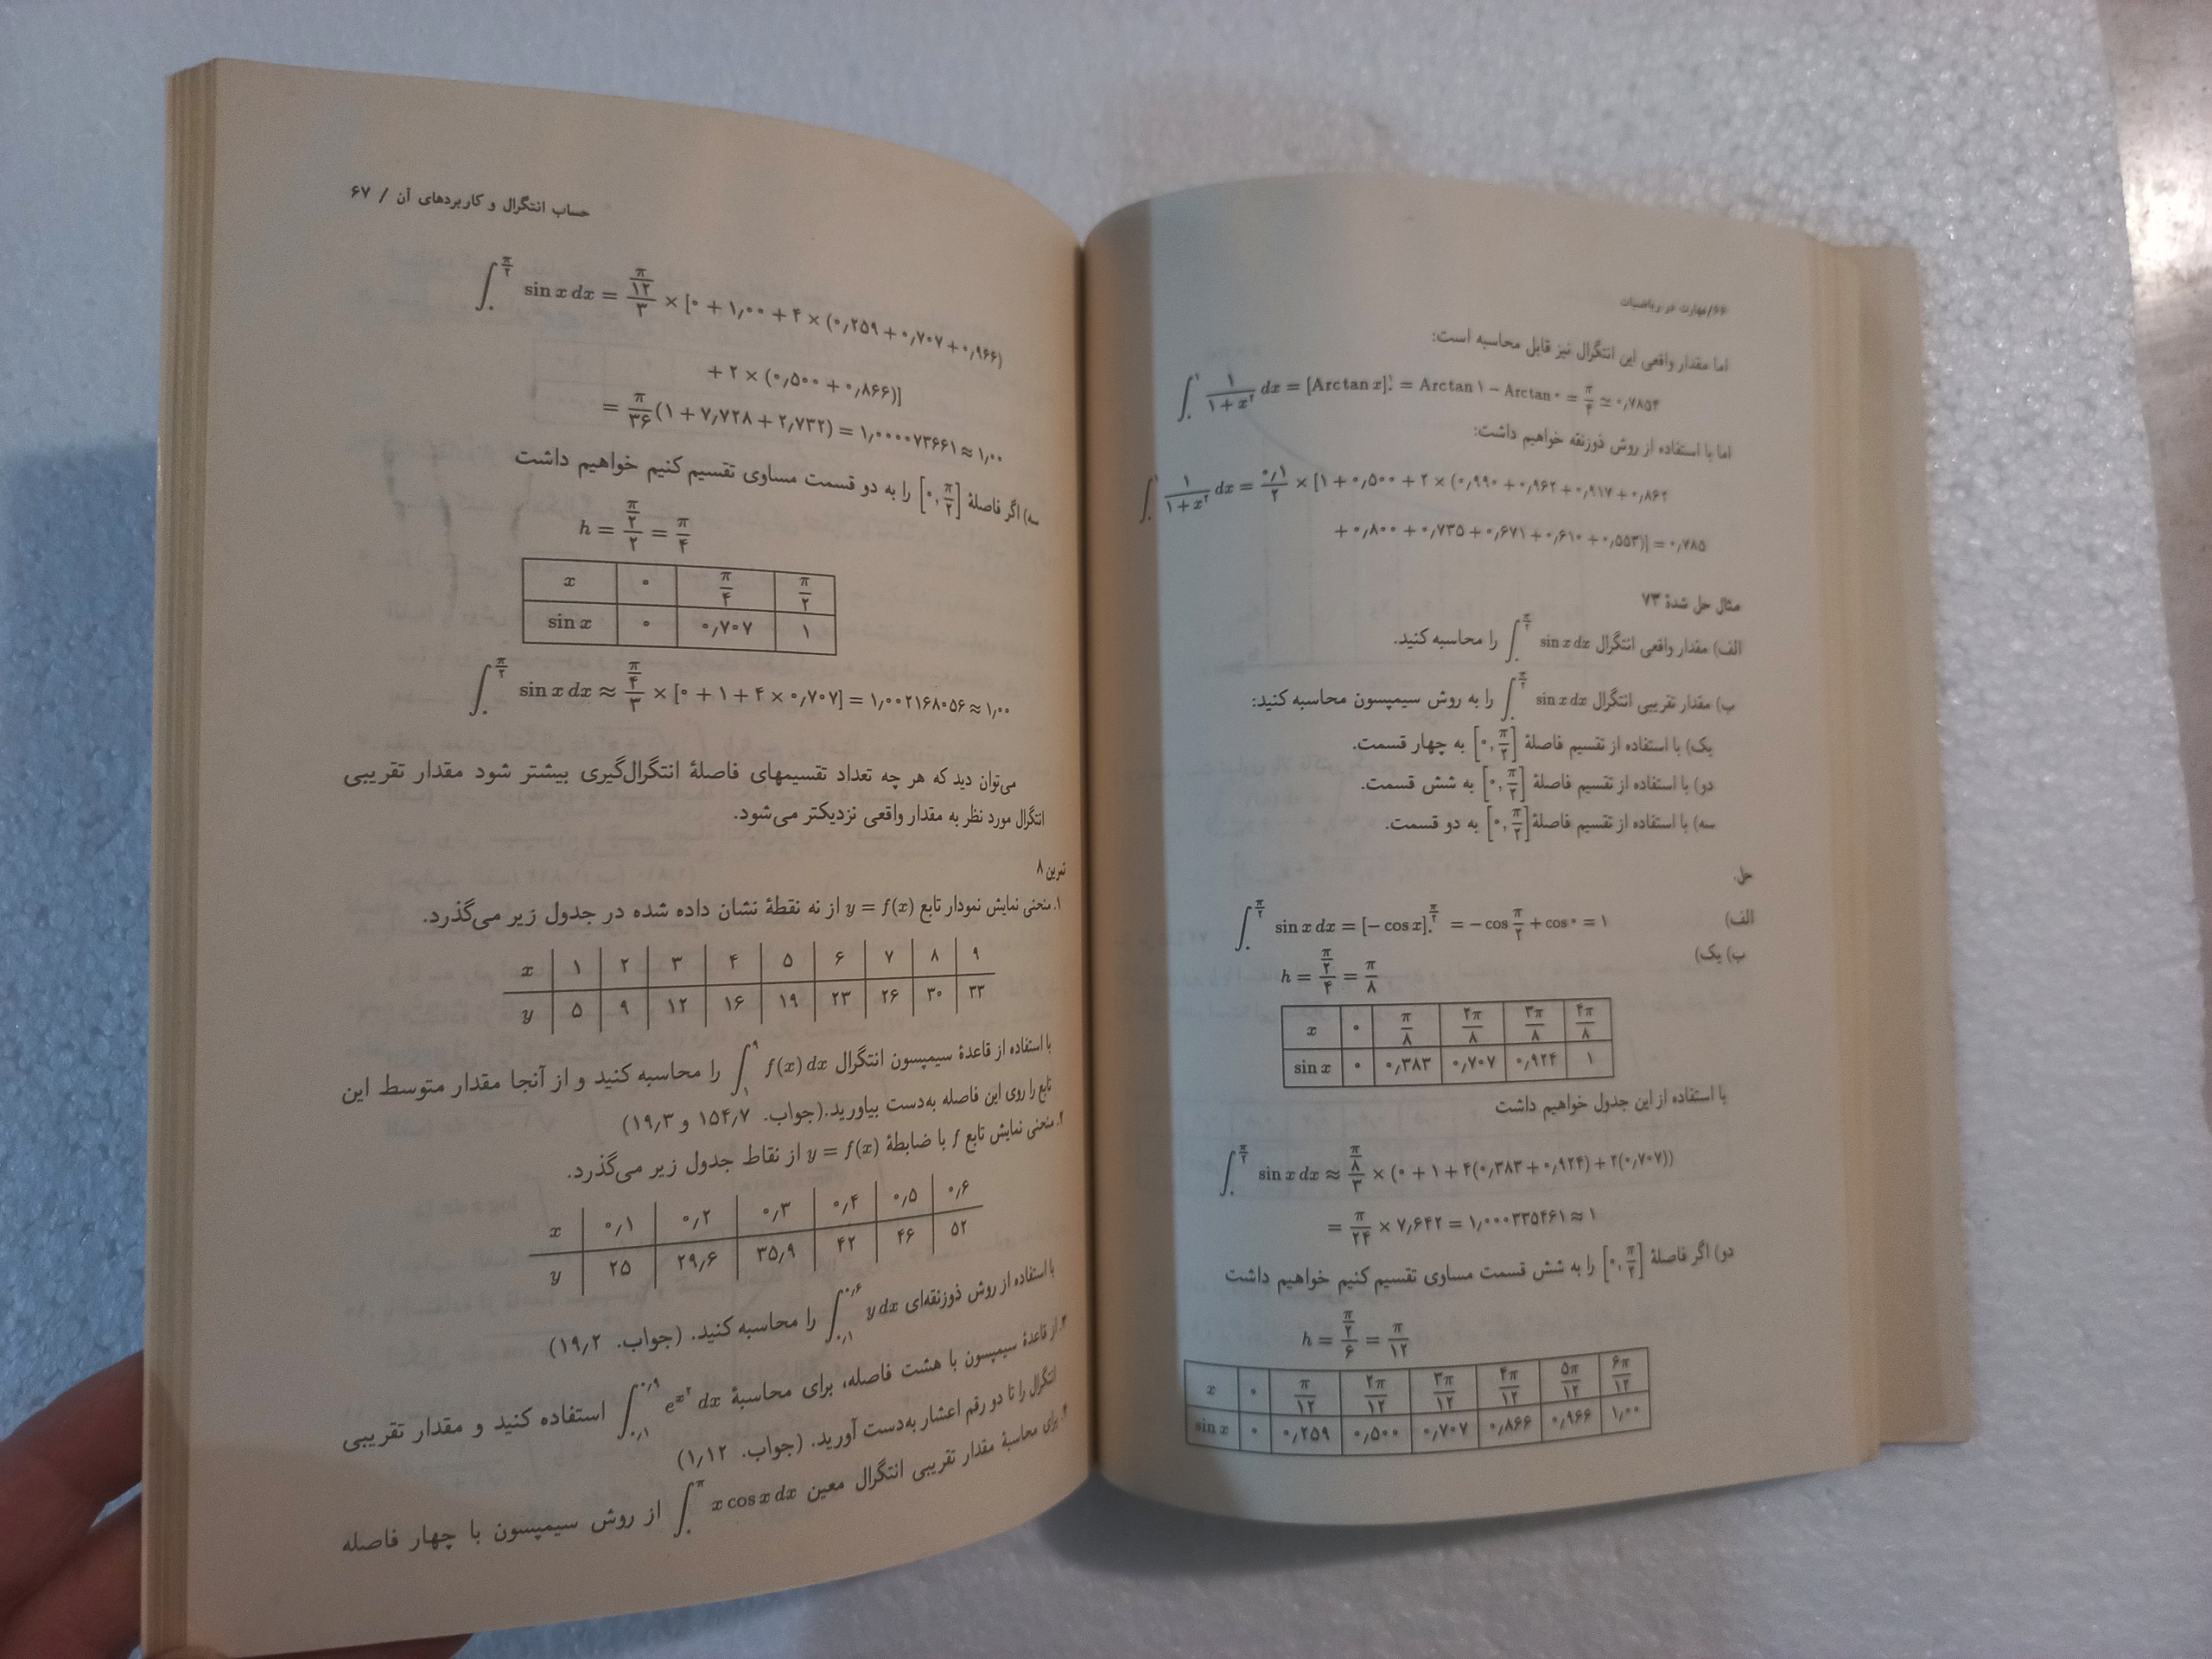 ۶۶/مهارت در ریاضیات
اما مقدار واقعی این انتگرال نیز قابل محاسبه است:
∫₀^۱ ۱/(۱+x^۲) dx = [Arctan x]₀^۱ = Arctan ۱ − Arctan ۰ = π/۴ ≃ ۰٫۷۸۵۴
اما با استفاده از روش ذوزنقه خواهیم داشت:
∫₀^۱ ۱/(۱+x^۲) dx = ۰٫۱/۲ × [۱ + ۰٫۵۰۰ + ۲ × (۰٫۹۹۰ + ۰٫۹۶۲ + ۰٫۹۱۷ + ۰٫۸۶۲
+ ۰٫۸۰۰ + ۰٫۷۳۵ + ۰٫۶۷۱ + ۰٫۶۱۰ + ۰٫۵۵۳)] = ۰٫۷۸۵
مثال حل شدهٔ ۷۳
الف) مقدار واقعی انتگرال ∫₀^(π/۲) sin x dx را محاسبه کنید.
ب) مقدار تقریبی انتگرال ∫₀^(π/۲) sin x dx را به روش سیمپسون محاسبه کنید:
یک) با استفاده از تقسیم فاصلهٔ [۰, π/۲] به چهار قسمت.
دو) با استفاده از تقسیم فاصلهٔ [۰, π/۲] به شش قسمت.
سه) با استفاده از تقسیم فاصلهٔ [۰, π/۲] به دو قسمت.
حل.
الف) ∫₀^(π/۲) sin x dx = [− cos x]₀^(π/۲) = − cos π/۲ + cos ۰ = ۱
ب) یک) h = (π/۲)/۴ = π/۸
x ۰ π/۸ ۲π/۸ ۳π/۸ ۴π/۸
sin x ۰ ۰٫۳۸۳ ۰٫۷۰۷ ۰٫۹۲۴ ۱
با استفاده از این جدول خواهیم داشت
∫₀^(π/۲) sin x dx ≈ (π/۸)/۳ × (۰ + ۱ + ۴(۰٫۳۸۳ + ۰٫۹۲۴) + ۲(۰٫۷۰۷))
= π/۲۴ × ۷٫۶۴۲ = ۱٫۰۰۰۳۳۵۴۶۱ ≈ ۱
دو) اگر فاصلهٔ [۰, π/۲] را به شش قسمت مساوی تقسیم کنیم خواهیم داشت
h = (π/۲)/۶ = π/۱۲
x ۰ π/۱۲ ۲π/۱۲ ۳π/۱۲ ۴π/۱۲ ۵π/۱۲ ۶π/۱۲
sin x ۰ ۰٫۲۵۹ ۰٫۵۰۰ ۰٫۷۰۷ ۰٫۸۶۶ ۰٫۹۶۶ ۱٫۰۰
حساب انتگرال و کاربردهای آن / ۶۷
∫₀^(π/۲) sin x dx = (π/۱۲)/۳ × [۰ + ۱٫۰۰ + ۴ × (۰٫۲۵۹ + ۰٫۷۰۷ + ۰٫۹۶۶)
+ ۲ × (۰٫۵۰۰ + ۰٫۸۶۶)]
= π/۳۶ (۱ + ۷٫۷۲۸ + ۲٫۷۳۲) = ۱٫۰۰۰۰۷۳۶۶۱ ≈ ۱٫۰۰
سه) اگر فاصلهٔ [۰, π/۲] را به دو قسمت مساوی تقسیم کنیم خواهیم داشت
h = (π/۲)/۲ = π/۴
x ۰ π/۴ π/۲
sin x ۰ ۰٫۷۰۷ ۱
∫₀^(π/۲) sin x dx ≈ (π/۴)/۳ × [۰ + ۱ + ۴ × ۰٫۷۰۷] = ۱٫۰۰۲۱۶۸۰۵۶ ≈ ۱٫۰۰
می‌توان دید که هر چه تعداد تقسیمهای فاصلهٔ انتگرال‌گیری بیشتر شود مقدار تقریبی
انتگرال مورد نظر به مقدار واقعی نزدیکتر می‌شود.
تمرین ۸
۱. منحنی نمایش نمودار تابع y = f(x) از نه نقطهٔ نشان داده شده در جدول زیر می‌گذرد.
x ۱ ۲ ۳ ۴ ۵ ۶ ۷ ۸ ۹
y ۵ ۹ ۱۲ ۱۶ ۱۹ ۲۳ ۲۶ ۳۰ ۳۳
با استفاده از قاعدهٔ سیمپسون انتگرال ∫₁^۹ f(x) dx را محاسبه کنید و از آنجا مقدار متوسط این
تابع را روی این فاصله به‌دست بیاورید.(جواب. ۱۵۴٫۷ و ۱۹٫۳)
۲. منحنی نمایش تابع f با ضابطهٔ y = f(x) از نقاط جدول زیر می‌گذرد.
x ۰٫۱ ۰٫۲ ۰٫۳ ۰٫۴ ۰٫۵ ۰٫۶
y ۲۵ ۲۹٫۶ ۳۵٫۹ ۴۲ ۴۶ ۵۲
با استفاده از روش ذوزنقه‌ای ∫₀٫₁^۰٫۶ y dx را محاسبه کنید. (جواب. ۱۹٫۲)
۳. از قاعدهٔ سیمپسون با هشت فاصله، برای محاسبهٔ ∫₀٫₁^۰٫۹ e^(x^۲) dx استفاده کنید و مقدار تقریبی
انتگرال را تا دو رقم اعشار به‌دست آورید. (جواب. ۱٫۱۲)
۴. برای محاسبهٔ مقدار تقریبی انتگرال معین ∫₀^π x cos x dx از روش سیمپسون با چهار فاصله